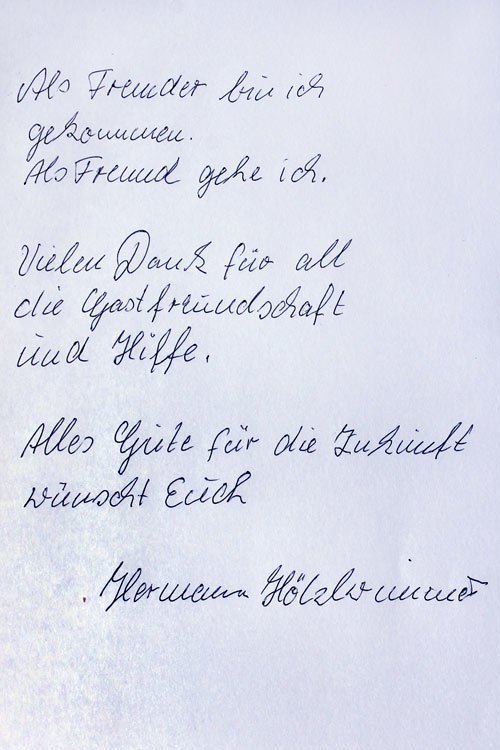 Als Fremder bin ich
gekommen.
Als Freund gehe ich.
Vielen Dank für all
die Gastfreundschaft
und Hilfe.
Alles Gute für die Zukunft
wünscht Euch
Hermann Hölzlwimmer